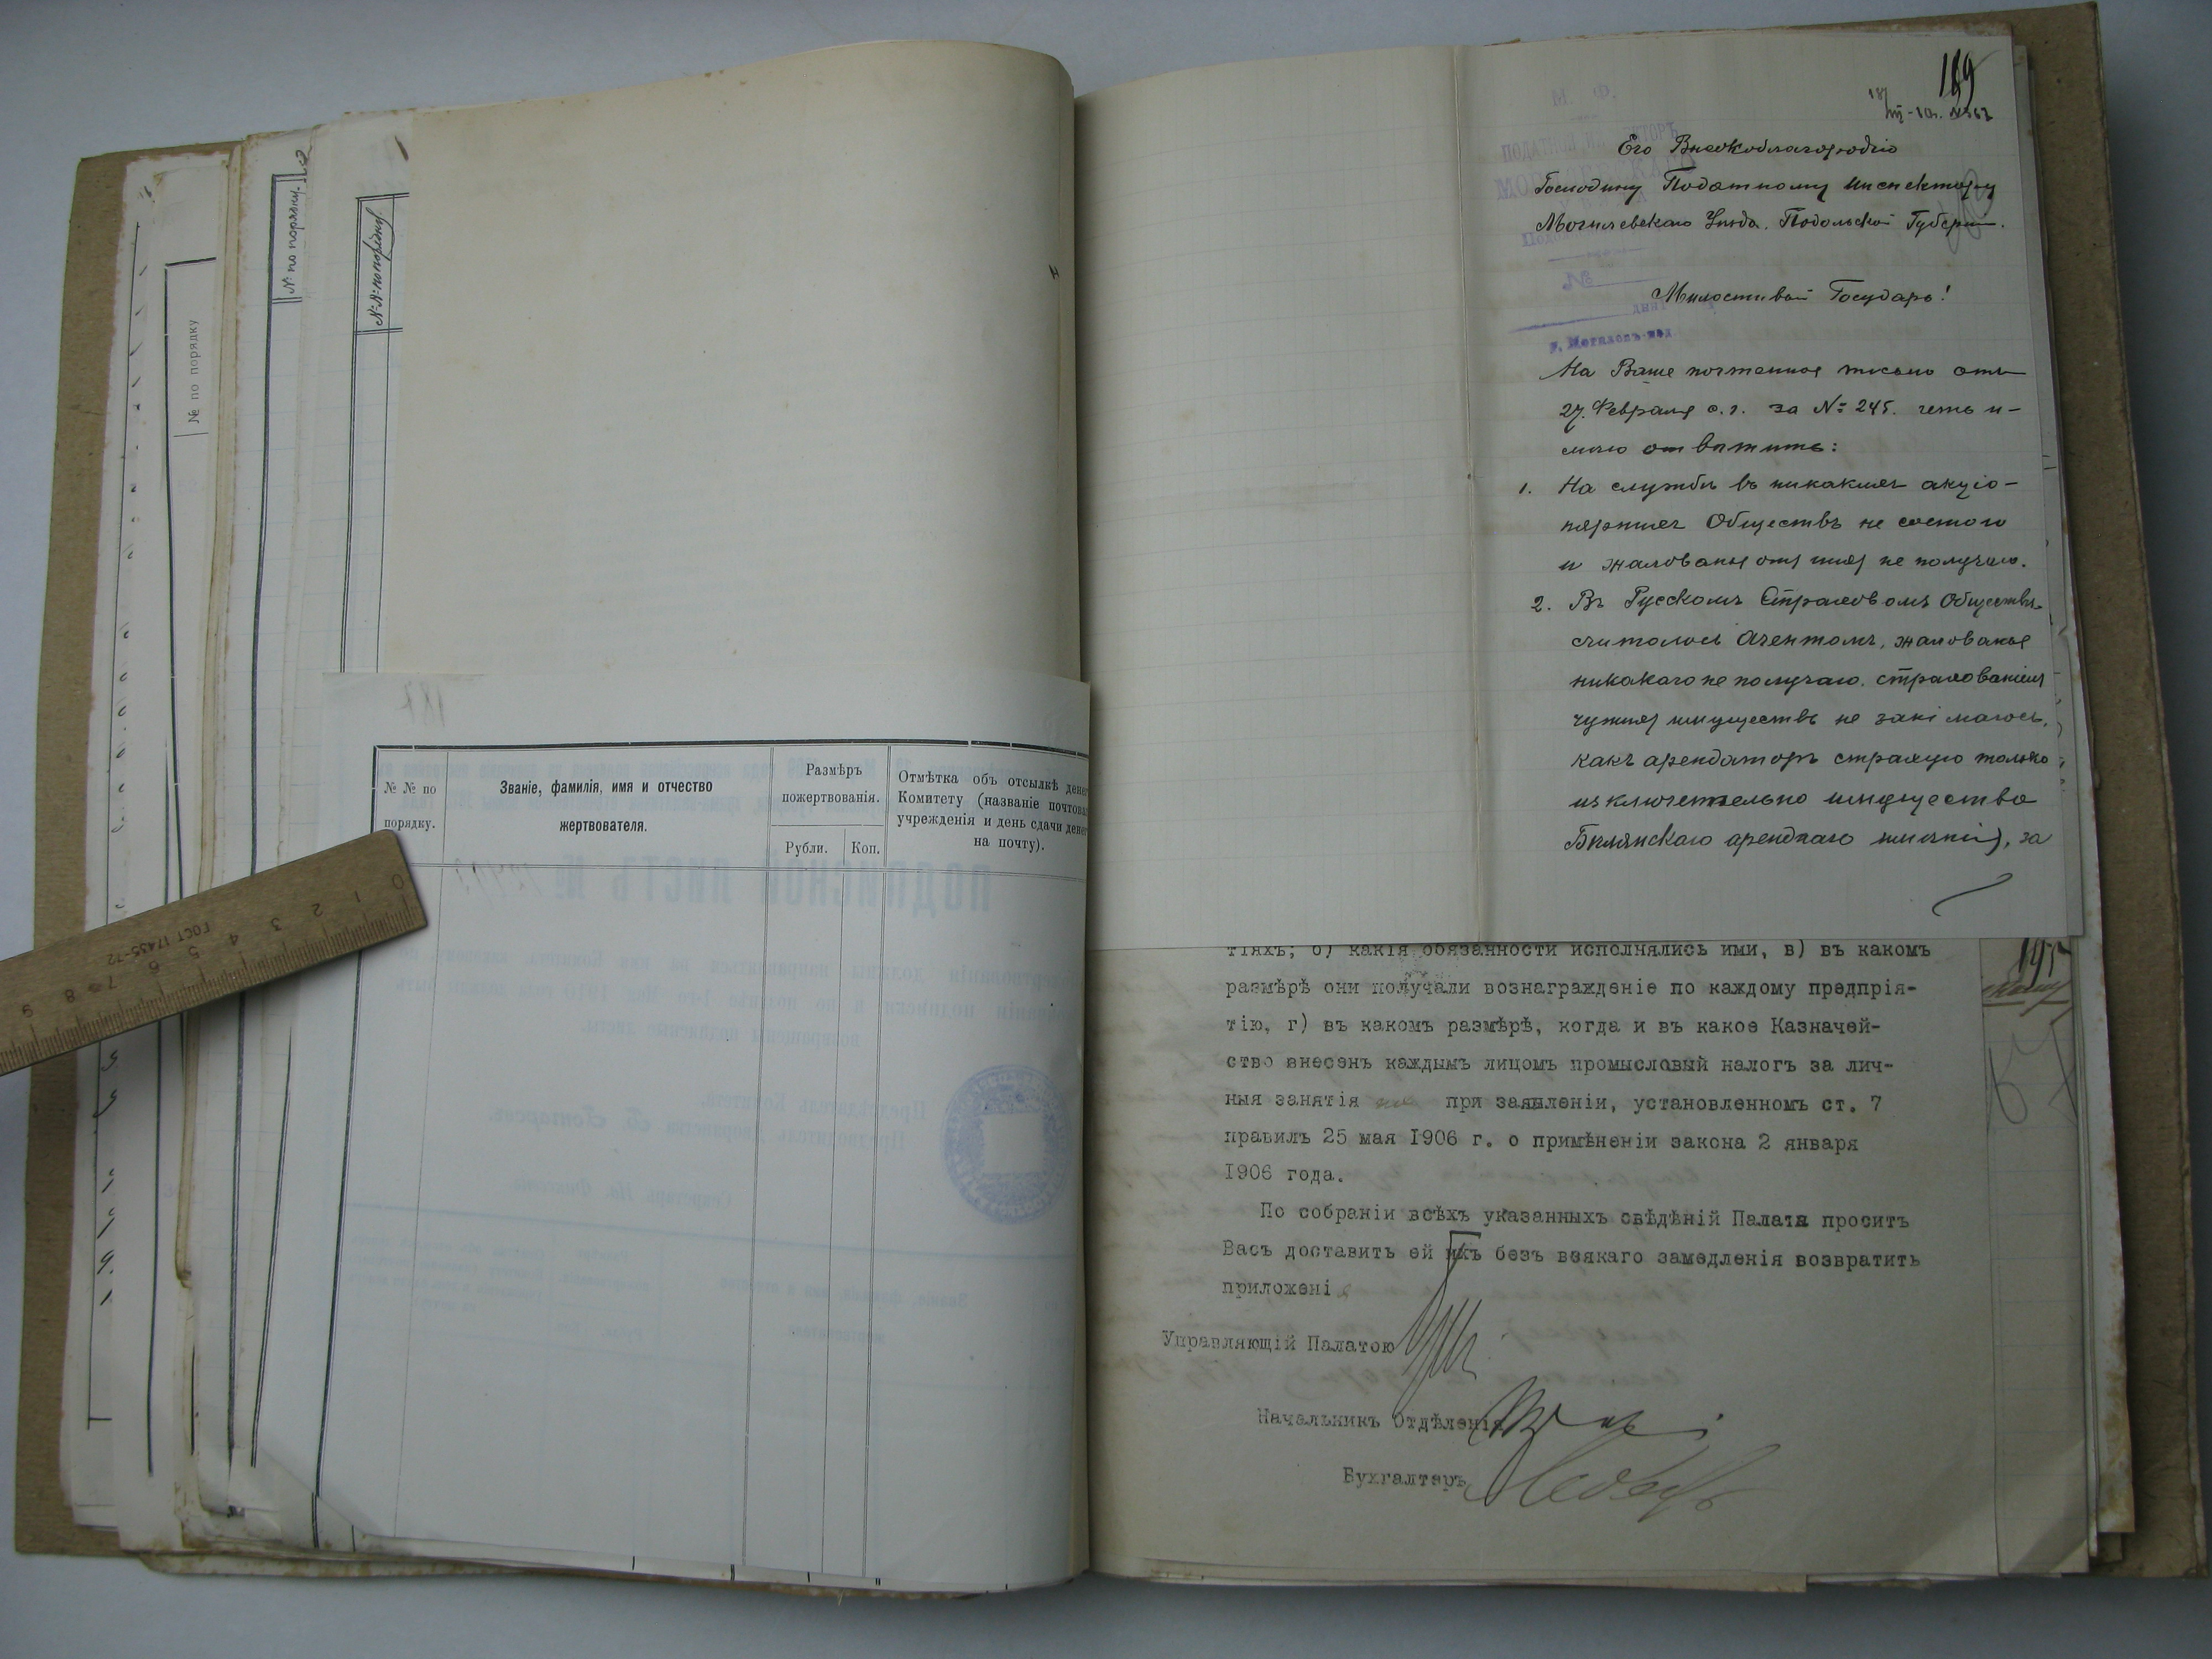 № по порядку
№ по порядку.
№ № по порядку.
№ № по
порядку.
Званіе, фамилія, имя и отчество
жертвователя.
Размѣръ
пожертвованія.
Рубли.
Коп.
Отмѣтка объ отсылкѣ денег
Комитету (названіе почтова
учрежденія и день сдачи денег
на почту).
ПОДПИСНОЙ ЛИСТЪ №
0 1 2 3 4 5 6 7 8 9
ГОСТ 17435-72
169
Его Высокоблагородію
Господину Податному Инспектору
Могилевскаго Уѣзда, Подольской Губерніи.
М. Ф.
№
г. Могилевъ-под.
Милостивый Государь!
На Ваше почтенное письмо отъ
27. Февраля с. г. за № 245. честь и-
мѣю отвѣтить:
1. На службѣ въ никакихъ акціо-
нерныхъ Обществъ не состою
и жалованья отъ нихъ не получаю.
2. Въ Русскомъ Страховомъ Обществѣ
считаюсь Агентомъ, жалованья
никакого не получаю. страхованіемъ
чужихъ имуществъ не занімаюсь,
какъ арендаторъ страхую только
исключетельно имущество
Бѣлянскаго арендаго имѣнія, за
тіяхъ; б) какія обязанности исполнялись ими, в) въ какомъ
размѣрѣ они получали вознагражденіе по каждому предпрія-
тію, г) въ какомъ размѣрѣ, когда и въ какое Казначей-
ство внесенъ каждымъ лицомъ промысловый налогъ за лич-
ныя занятія при заявленіи, установленномъ ст. 7
правилъ 25 мая 1906 г. о примѣненіи закона 2 января
1906 года.
По собраніи всѣхъ указанныхъ свѣдѣній Палата проситъ
Васъ доставить ей ихъ безъ всякаго замедленія возвратить
приложені
Управляющій Палатою
Начальникъ Отдѣленія
Бухгалтеръ